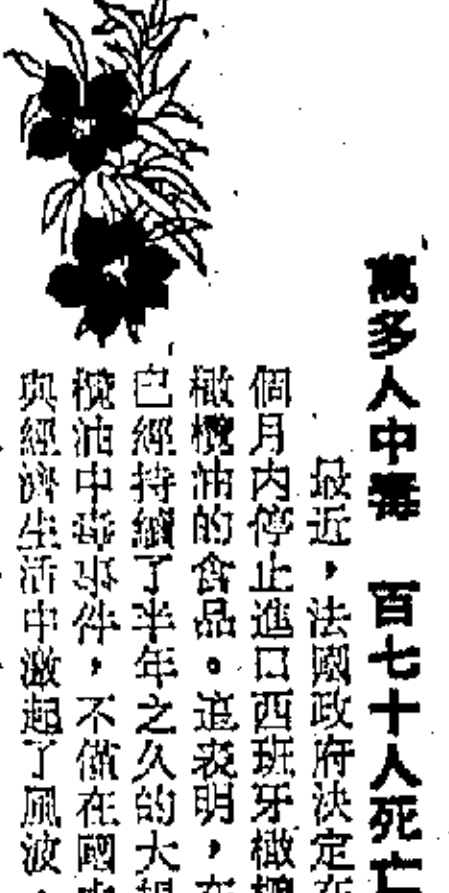 萬多人中毒 百七十人死亡
最近，法國政府決定在
個月内停止進口西班牙橄欖
橄欖油的食品。這表明，在
已經持續了半年之久的大規
欖油中毒事件，不僅在國
與經濟生活中激起了風波，